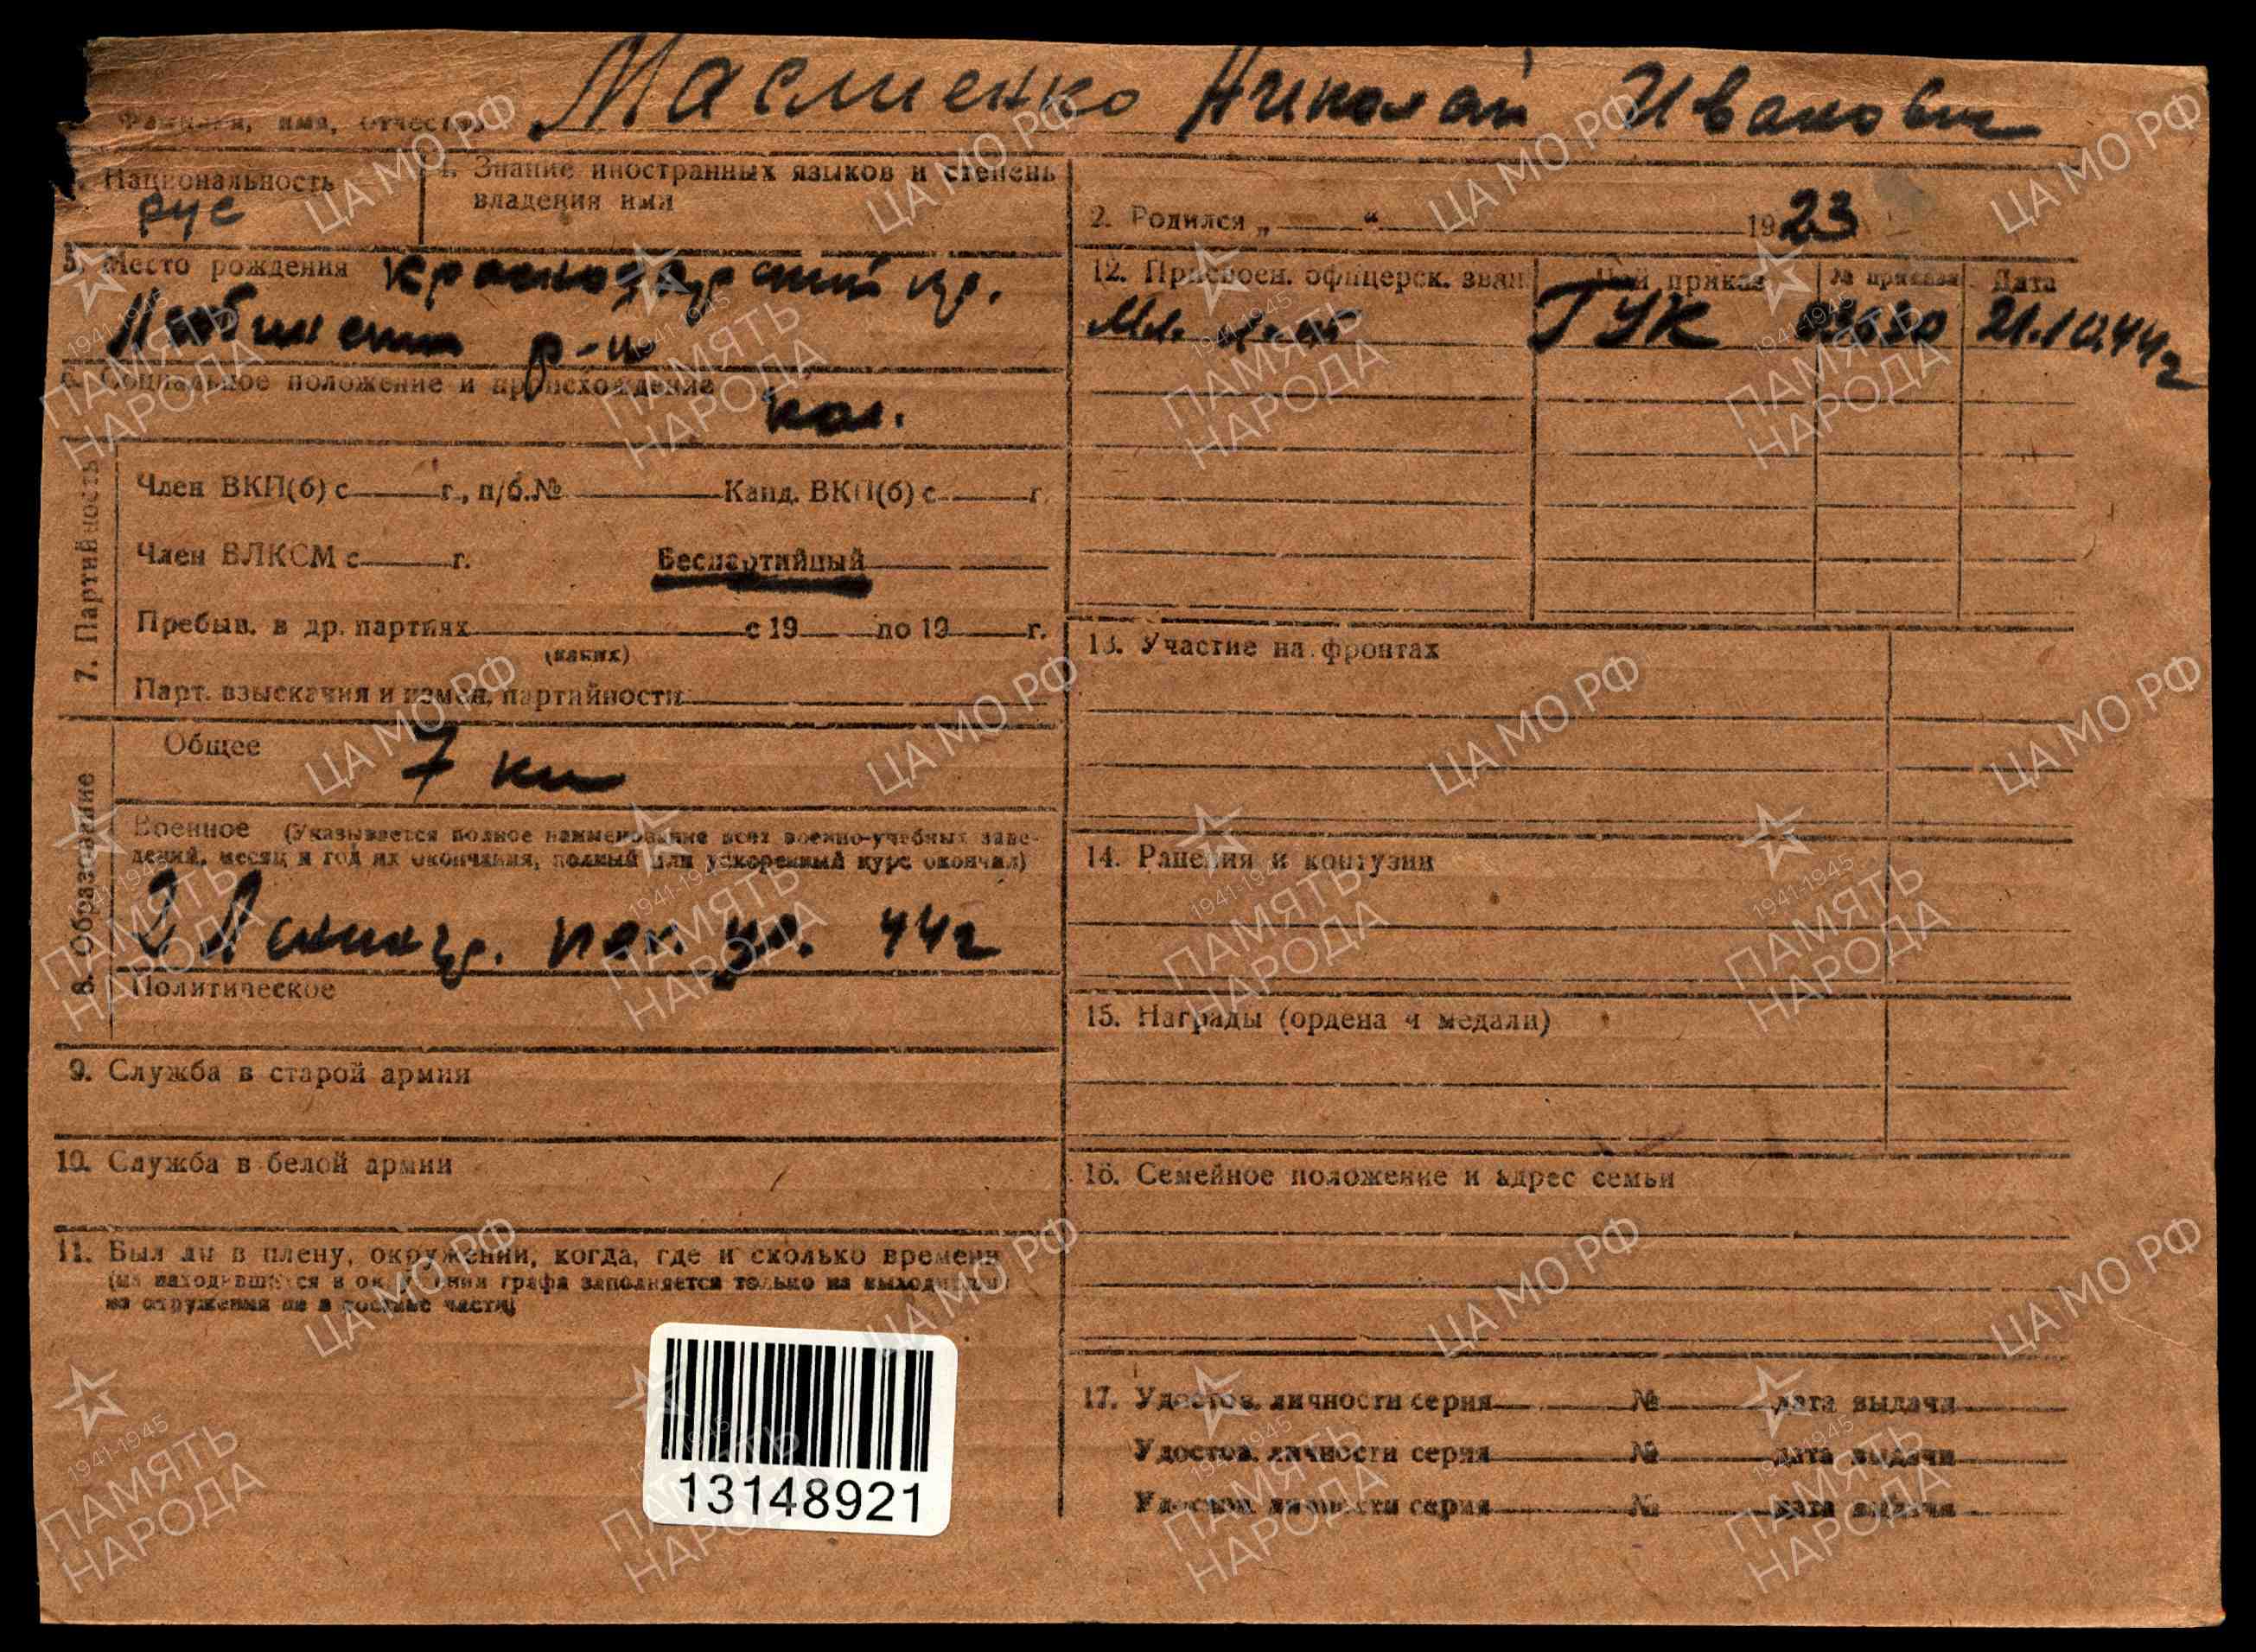 Маслиенко Николай Иванович
Фамилия, имя, отчество
Национальность
рус
4. Знание иностранных языков и степень
владения ими
2. Родился „ “ 1923
5. Место рождения Краснодарский кр.
р-н
6. Социальное положение и происхождение
кол.
12. Присвоен. офицерск. зван. Чей приказ № приказа Дата
Мл. л-нт ГУК 21.10.44г
7. Партийность
Член ВКП(б) с г., п/б.№ Канд. ВКП(б) с г.
Член ВЛКСМ с г. Беспартийный
Пребыв. в др. партиях с 19 по 19 г.
(каких)
Парт. взыскания и измен. партийности
8. Образование
Общее 7 кл
Военное (Указывается полное наименование всех военно-учебных заве-
дений, месяц и год их окончания, полный или ускоренный курс окончил)
2 Ленингр. пех. уч. 44г
Политическое
9. Служба в старой армии
10. Служба в белой армии
11. Был ли в плену, окружении, когда, где и сколько времени
(на находившихся в окружении графа заполняется только на выходивших
из окружения не в составе части)
13. Участие на фронтах
14. Ранения и контузии
15. Награды (ордена и медали)
16. Семейное положение и адрес семьи
17. Удостов. личности серия № дата выдачи
Удостов. личности серия № дата выдачи
Удостов. личности серия № дата выдачи
13148921
ЦА МО РФ
1941-1945
ПАМЯТЬ
НАРОДА